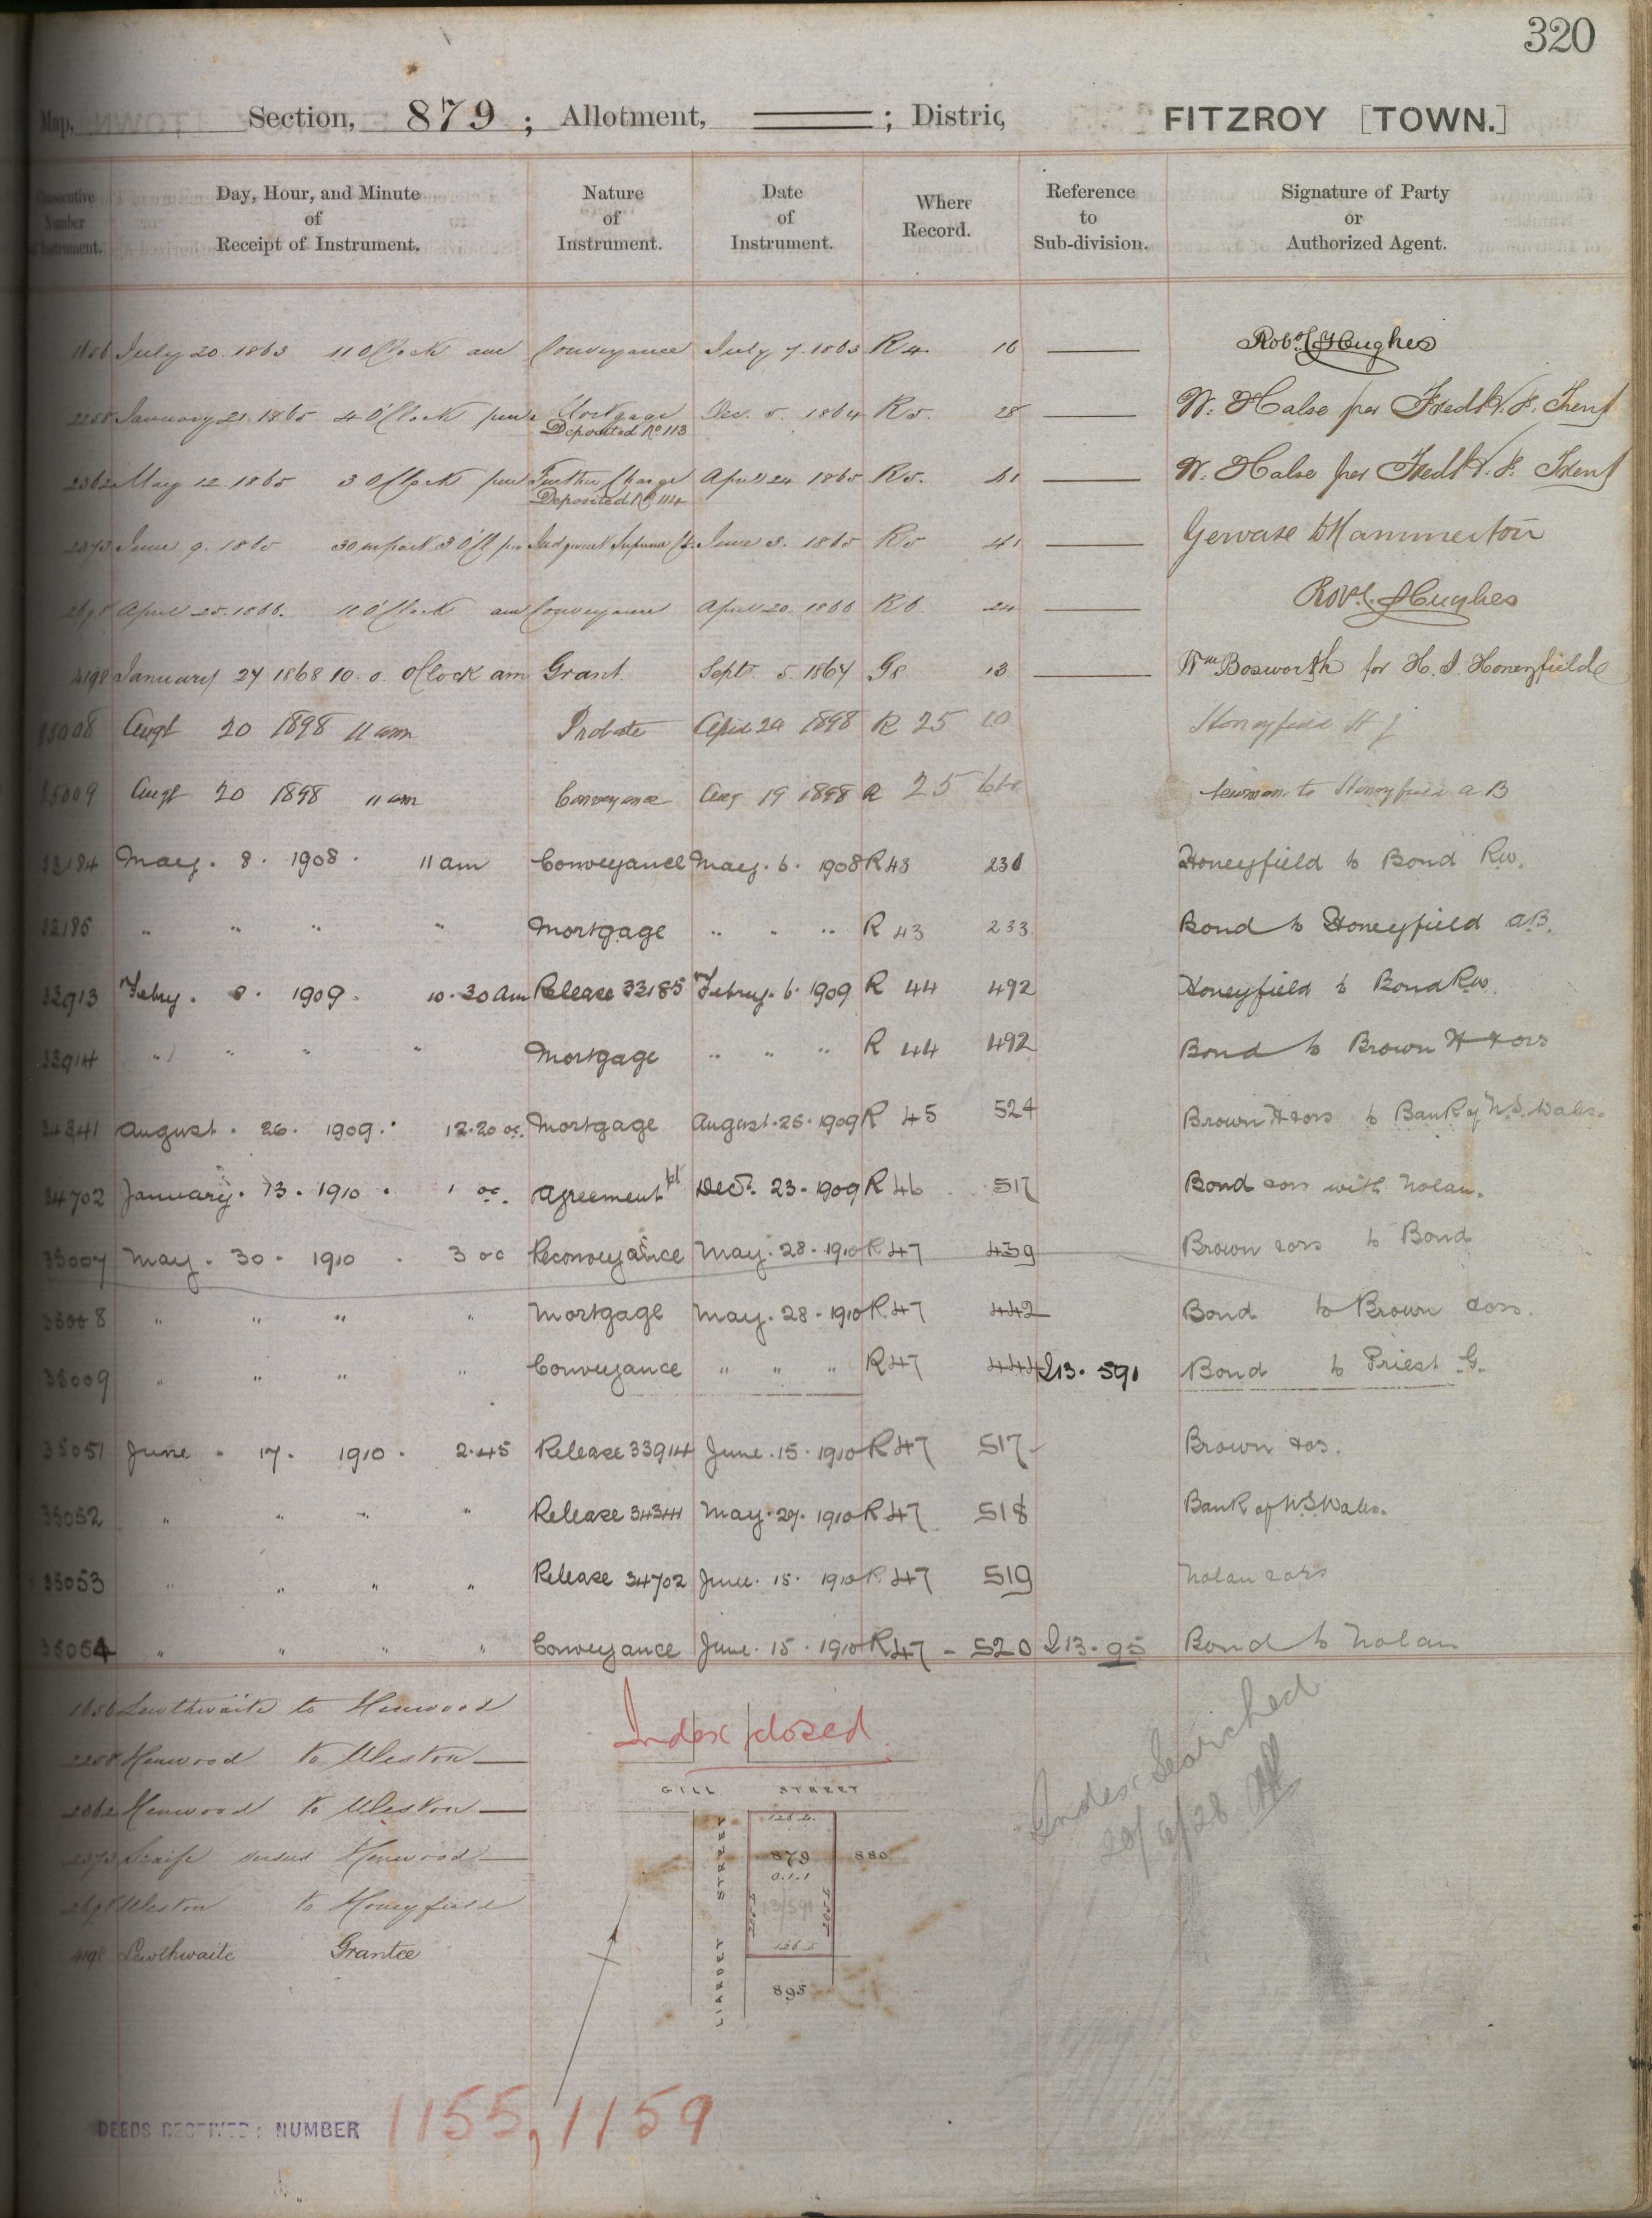 320
Map, Section, 879 ; Allotment, ——— ; Distric, FITZROY [TOWN.]
Consecutive Number of Instrument.
Day, Hour, and Minute of Receipt of Instrument.
Nature of Instrument.
Date of Instrument.
Where Record.
Reference to Sub-division.
Signature of Party or Authorized Agent.
1656 July 20. 1863 11 O'Clock am Conveyance July 7. 1863 R4 16 —— Robt Hughes
2258 January 21. 1865 4 O'Clock pm Mortgage Dec. 5. 1864 R5. 28 —— W. Halse per
Deposited No 113
2362 May 12. 1865 3 O'Clock pm Further Charge April 24 1865 R5. 41 —— W. Halse per
Deposited No 114
2373 June 9. 1865 30 m past 3 O'Cl pm Judgment Supreme Ct. June 3. 1865 R5 41 —— Gervase D Hammerton
2698 April 25. 1866. 11 O'Clock am Conveyance April 20. 1866 R6 24 —— Robt. Hughes
4198 January 27 1868 10. 0. O'Clock am Grant. Sept. 5. 1864 G8 13 —— Wm Bosworth for H. J. Honeyfield
25008 Augt 20 1898 11 am Probate April 29 1898 R 25 Honeyfield H J
25009 Augt 20 1898 11 am Conveyance Aug 19 1898 R 25 Newman to Honeyfield A B
May. 8. 1908. 11 am Conveyance May. 6. 1908 R 43 Honeyfield to Bond RW.
" " " " Mortgage " " " R 43 233 Bond to Honeyfield A.B.
33913 Febry. 8. 1909. 10.30 am Release 33185 Febry. 6. 1909 R 44 492 Honeyfield to Bond RW.
33914 " " " " Mortgage " " " R 44 492 Bond to Brown H & ors
34341 August. 26. 1909. 12.20 oc. Mortgage August. 25. 1909 R 45 524 Brown H & ors to Bank of N.S. Wales.
34702 January. 13. 1910. 1 oc. Agreement pt Decr. 23. 1909 R 46 517 Bond & ors with Nolan.
35007 May. 30. 1910. 3 oc Reconveyance May. 28. 1910 R 47 439 Brown & ors to Bond
35008 " " " " Mortgage May. 28. 1910 R 47 442 Bond to Brown & ors.
35009 " " " " Conveyance " " " R 47 444 213. 591 Bond to Priest G.
35051 June. 17. 1910. 2.45 Release 33914 June. 15. 1910 R 47 517 Brown & ors.
35052 " " " " Release 34341 May. 27. 1910 R 47 518 Bank of N.S. Wales.
35053 " " " " Release 34702 June. 15. 1910 R. 47 519 Nolan & ors
35054 " " " " Conveyance June. 15. 1910 R 47 - 520 213. 95 Bond to Nolan
1656 Lewthwaite to Henwood
2258 Henwood to Weston
2362 Henwood to Weston
2373 Scaife versus Henwood
2698 Weston to Honeyfield
4198 Lewthwaite Grantee
Index closed.
Index Searched
GILL STREET
LIARDET STREET
879
0.1.1
13/591
880
895
DEEDS RECEIVED: NUMBER 1155, 1159